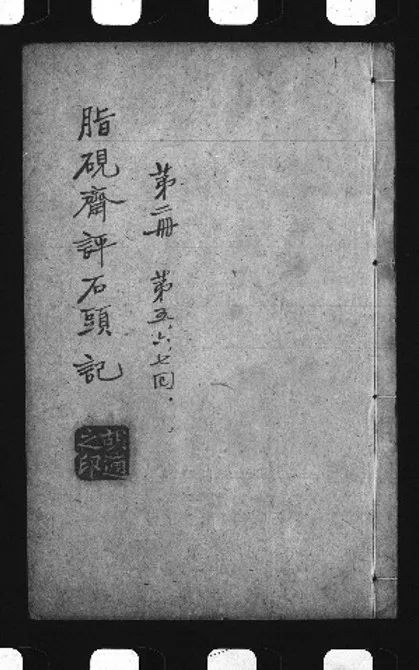 第二冊 第五、六、七回.
脂硯齋評石頭記
胡適
之印